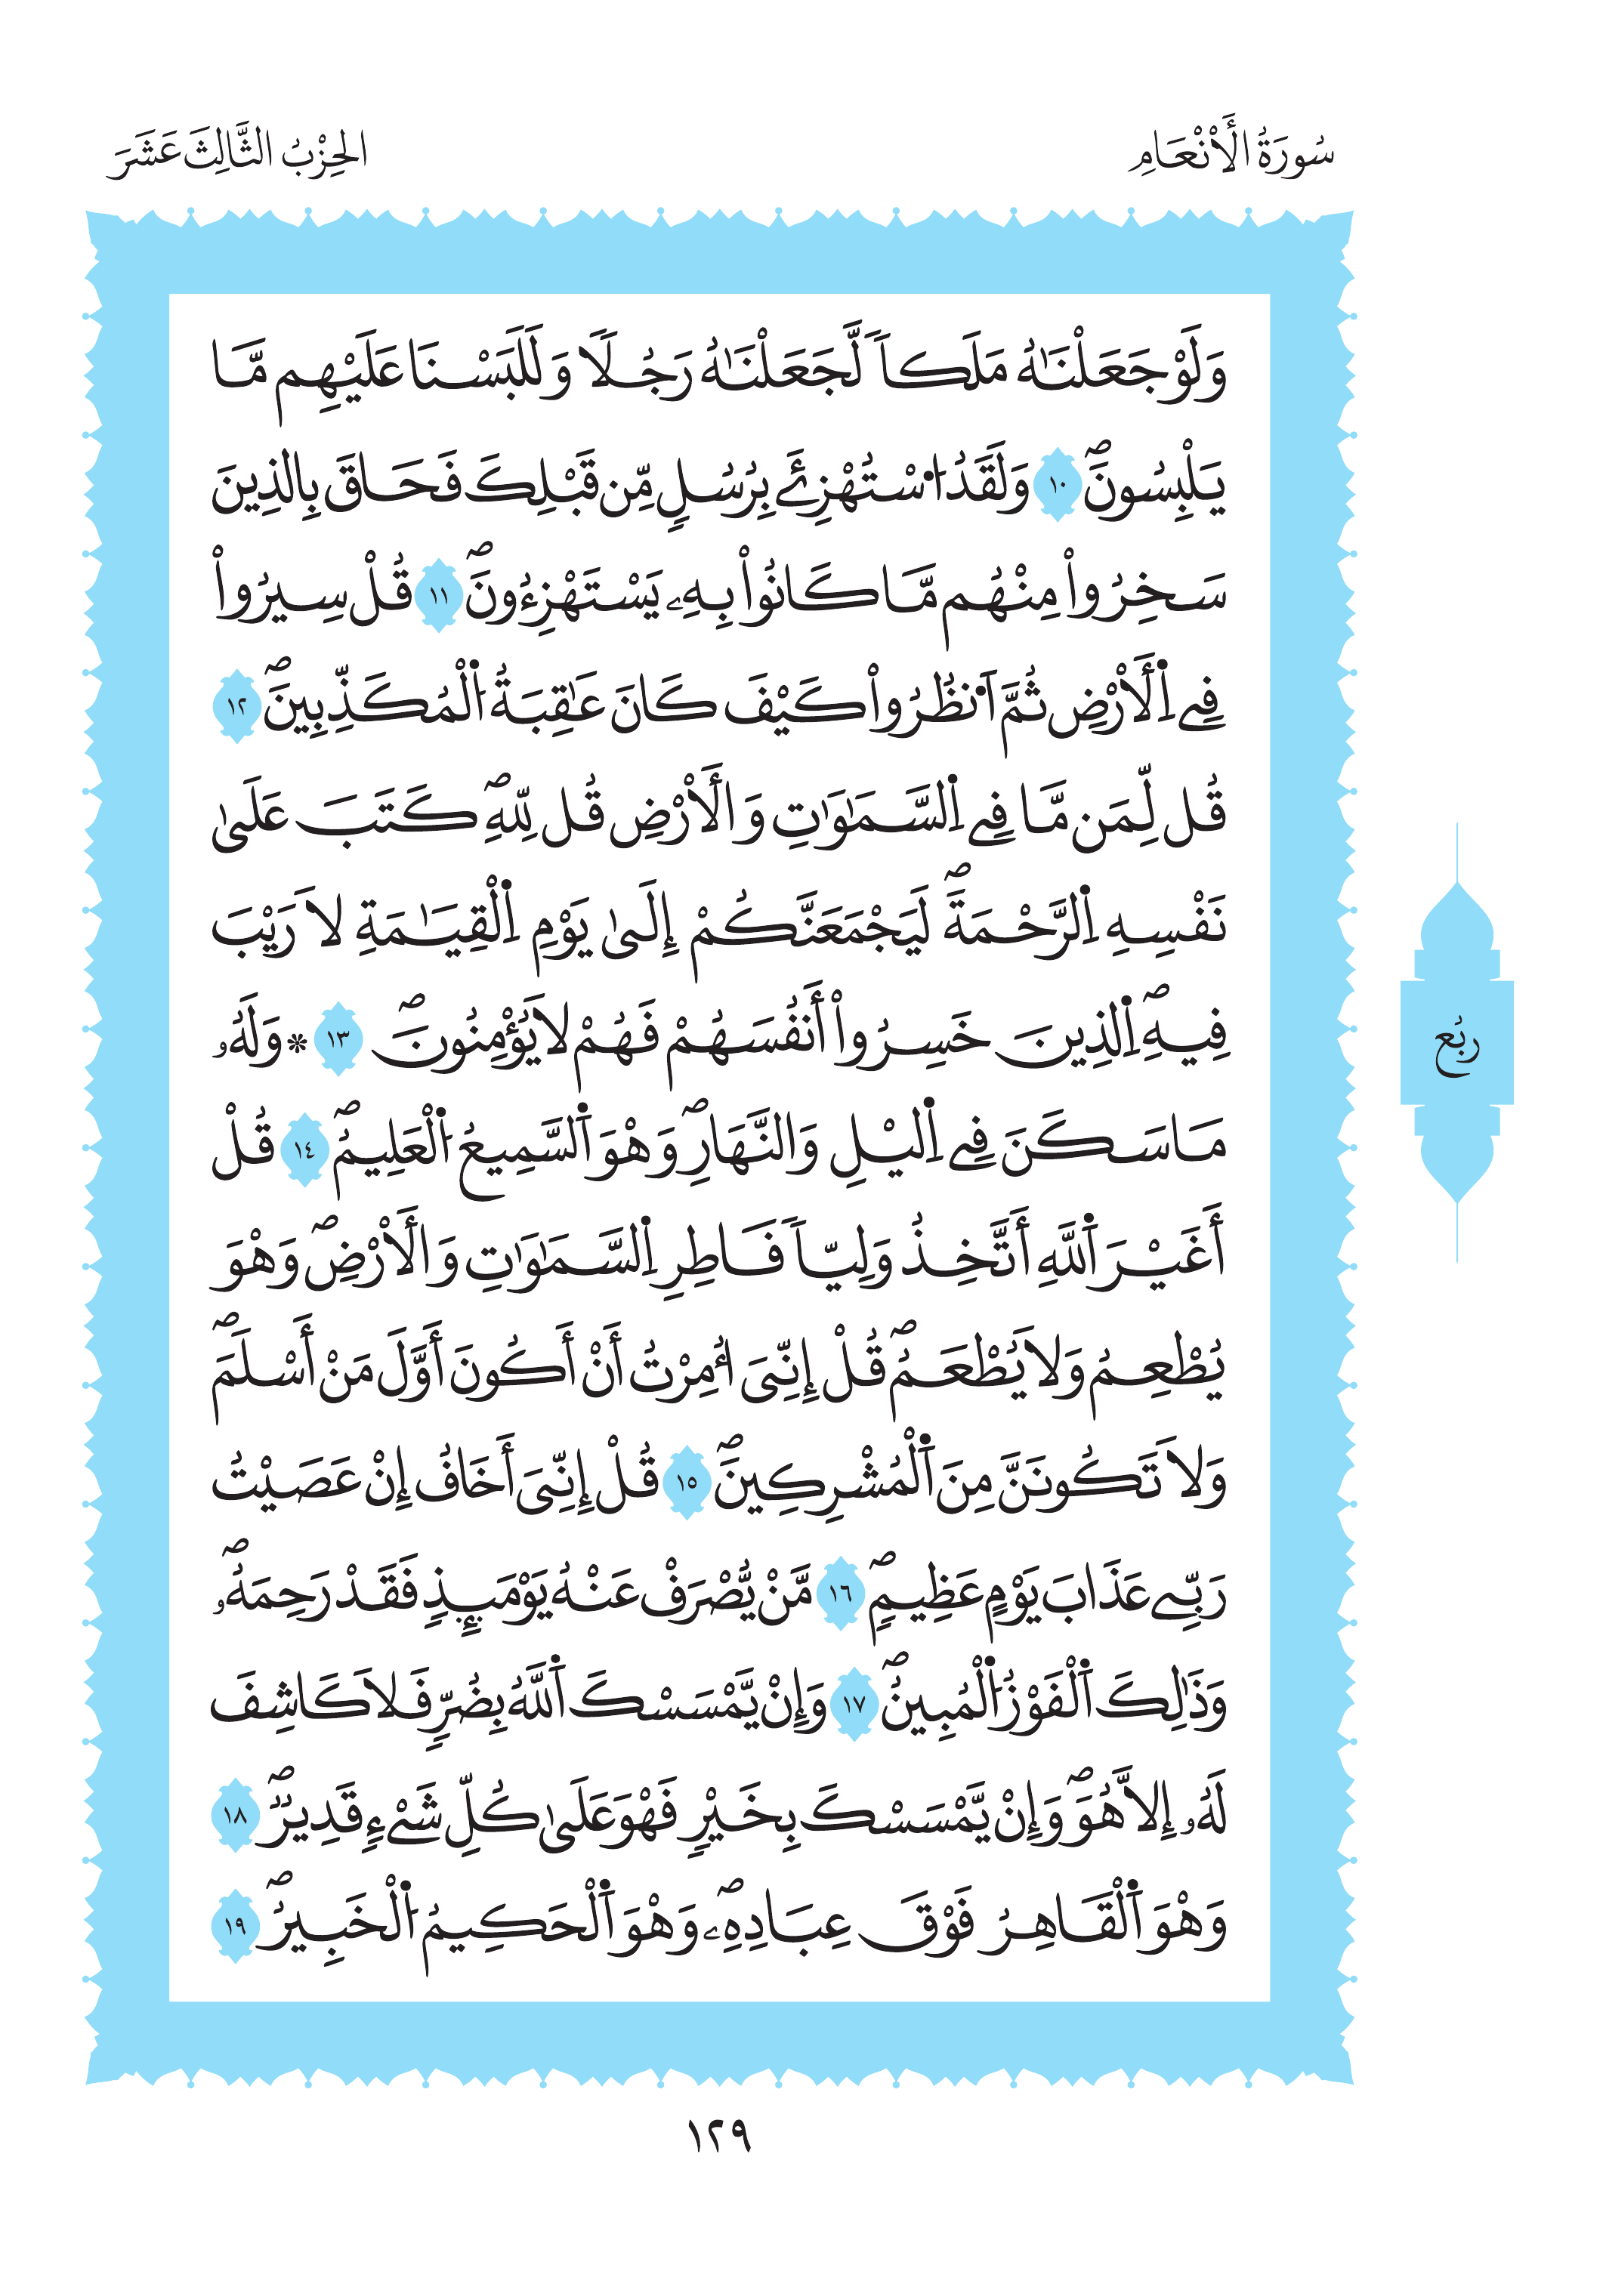 سُورَةُ الْأَنْعَامِ
الحِزْبُ الثَّالِثَ عَشَرَ
وَلَوْ جَعَلْنَٰهُ مَلَكاٗ لَّجَعَلْنَٰهُ رَجُلاٗ وَلَلَبَسْنَا عَلَيْهِم مَّا
يَلْبِسُونَۖ ١٠ وَلَقَدُ اُسْتُهْزِئَ بِرُسُلٖ مِّن قَبْلِكَ فَحَاقَ بِالذِينَ
سَخِرُواْ مِنْهُم مَّا كَانُواْ بِهِۦ يَسْتَهْزِءُونَۖ ١١ قُلْ سِيرُواْ
فِے اِ۬لْأَرْضِ ثُمَّ اَ۟نظُرُواْ كَيْفَ كَانَ عَٰقِبَةُ اُ۬لْمُكَذِّبِينَۖ ١٢
قُل لِّمَن مَّا فِے اِ۬لسَّمَٰوَٰتِ وَالْأَرْضِ قُل لِّلهِۖ كَتَبَ عَلَىٰ
نَفْسِهِ اِ۬لرَّحْمَةَۖ لَيَجْمَعَنَّكُمْ إِلَىٰ يَوْمِ اِ۬لْقِيَٰمَةِ لَا رَيْبَ
فِيهِۖ اِ۬لذِينَ خَسِرُواْ أَنفُسَهُمْ فَهُمْ لَا يُؤْمِنُونَۖ ١٣ * وَلَهُۥ
مَا سَكَنَ فِے اِ۬ليْلِ وَالنَّهَارِۖ وَهْوَ اَ۬لسَّمِيعُ اُ۬لْعَلِيمُۖ ١٤ قُلْ
أَغَيْرَ اَ۬للَّهِ أَتَّخِذُ وَلِيّاٗ فَاطِرِ اِ۬لسَّمَٰوَٰتِ وَالْأَرْضِۖ وَهْوَ
يُطْعِمُ وَلَا يُطْعَمُۖ قُلْ إِنِّيَ أُمِرْتُ أَنْ أَكُونَ أَوَّلَ مَنْ أَسْلَمَۖ
وَلَا تَكُونَنَّ مِنَ اَ۬لْمُشْرِكِينَۖ ١٥ قُلْ إِنِّيَ أَخَافُ إِنْ عَصَيْتُ
رَبِّے عَذَابَ يَوْمٍ عَظِيمٖۖ ١٦ مَّنْ يُّصْرَفْ عَنْهُ يَوْمَئِذٖ فَقَدْ رَحِمَهُۥۖ
وَذَٰلِكَ اَ۬لْفَوْزُ اُ۬لْمُبِينُۖ ١٧ وَإِنْ يَّمْسَسْكَ اَ۬للَّهُ بِضُرّٖ فَلَا كَاشِفَ
لَهُۥ إِلَّا هُوَۖ وَإِنْ يَّمْسَسْكَ بِخَيْرٖ فَهْوَ عَلَىٰ كُلِّ شَےْءٖ قَدِيرٞۖ ١٨
وَهْوَ اَ۬لْقَاهِرُ فَوْقَ عِبَادِهِۦۖ وَهْوَ اَ۬لْحَكِيمُ اُ۬لْخَبِيرُۖ ١٩
رُبُع
١٢٩